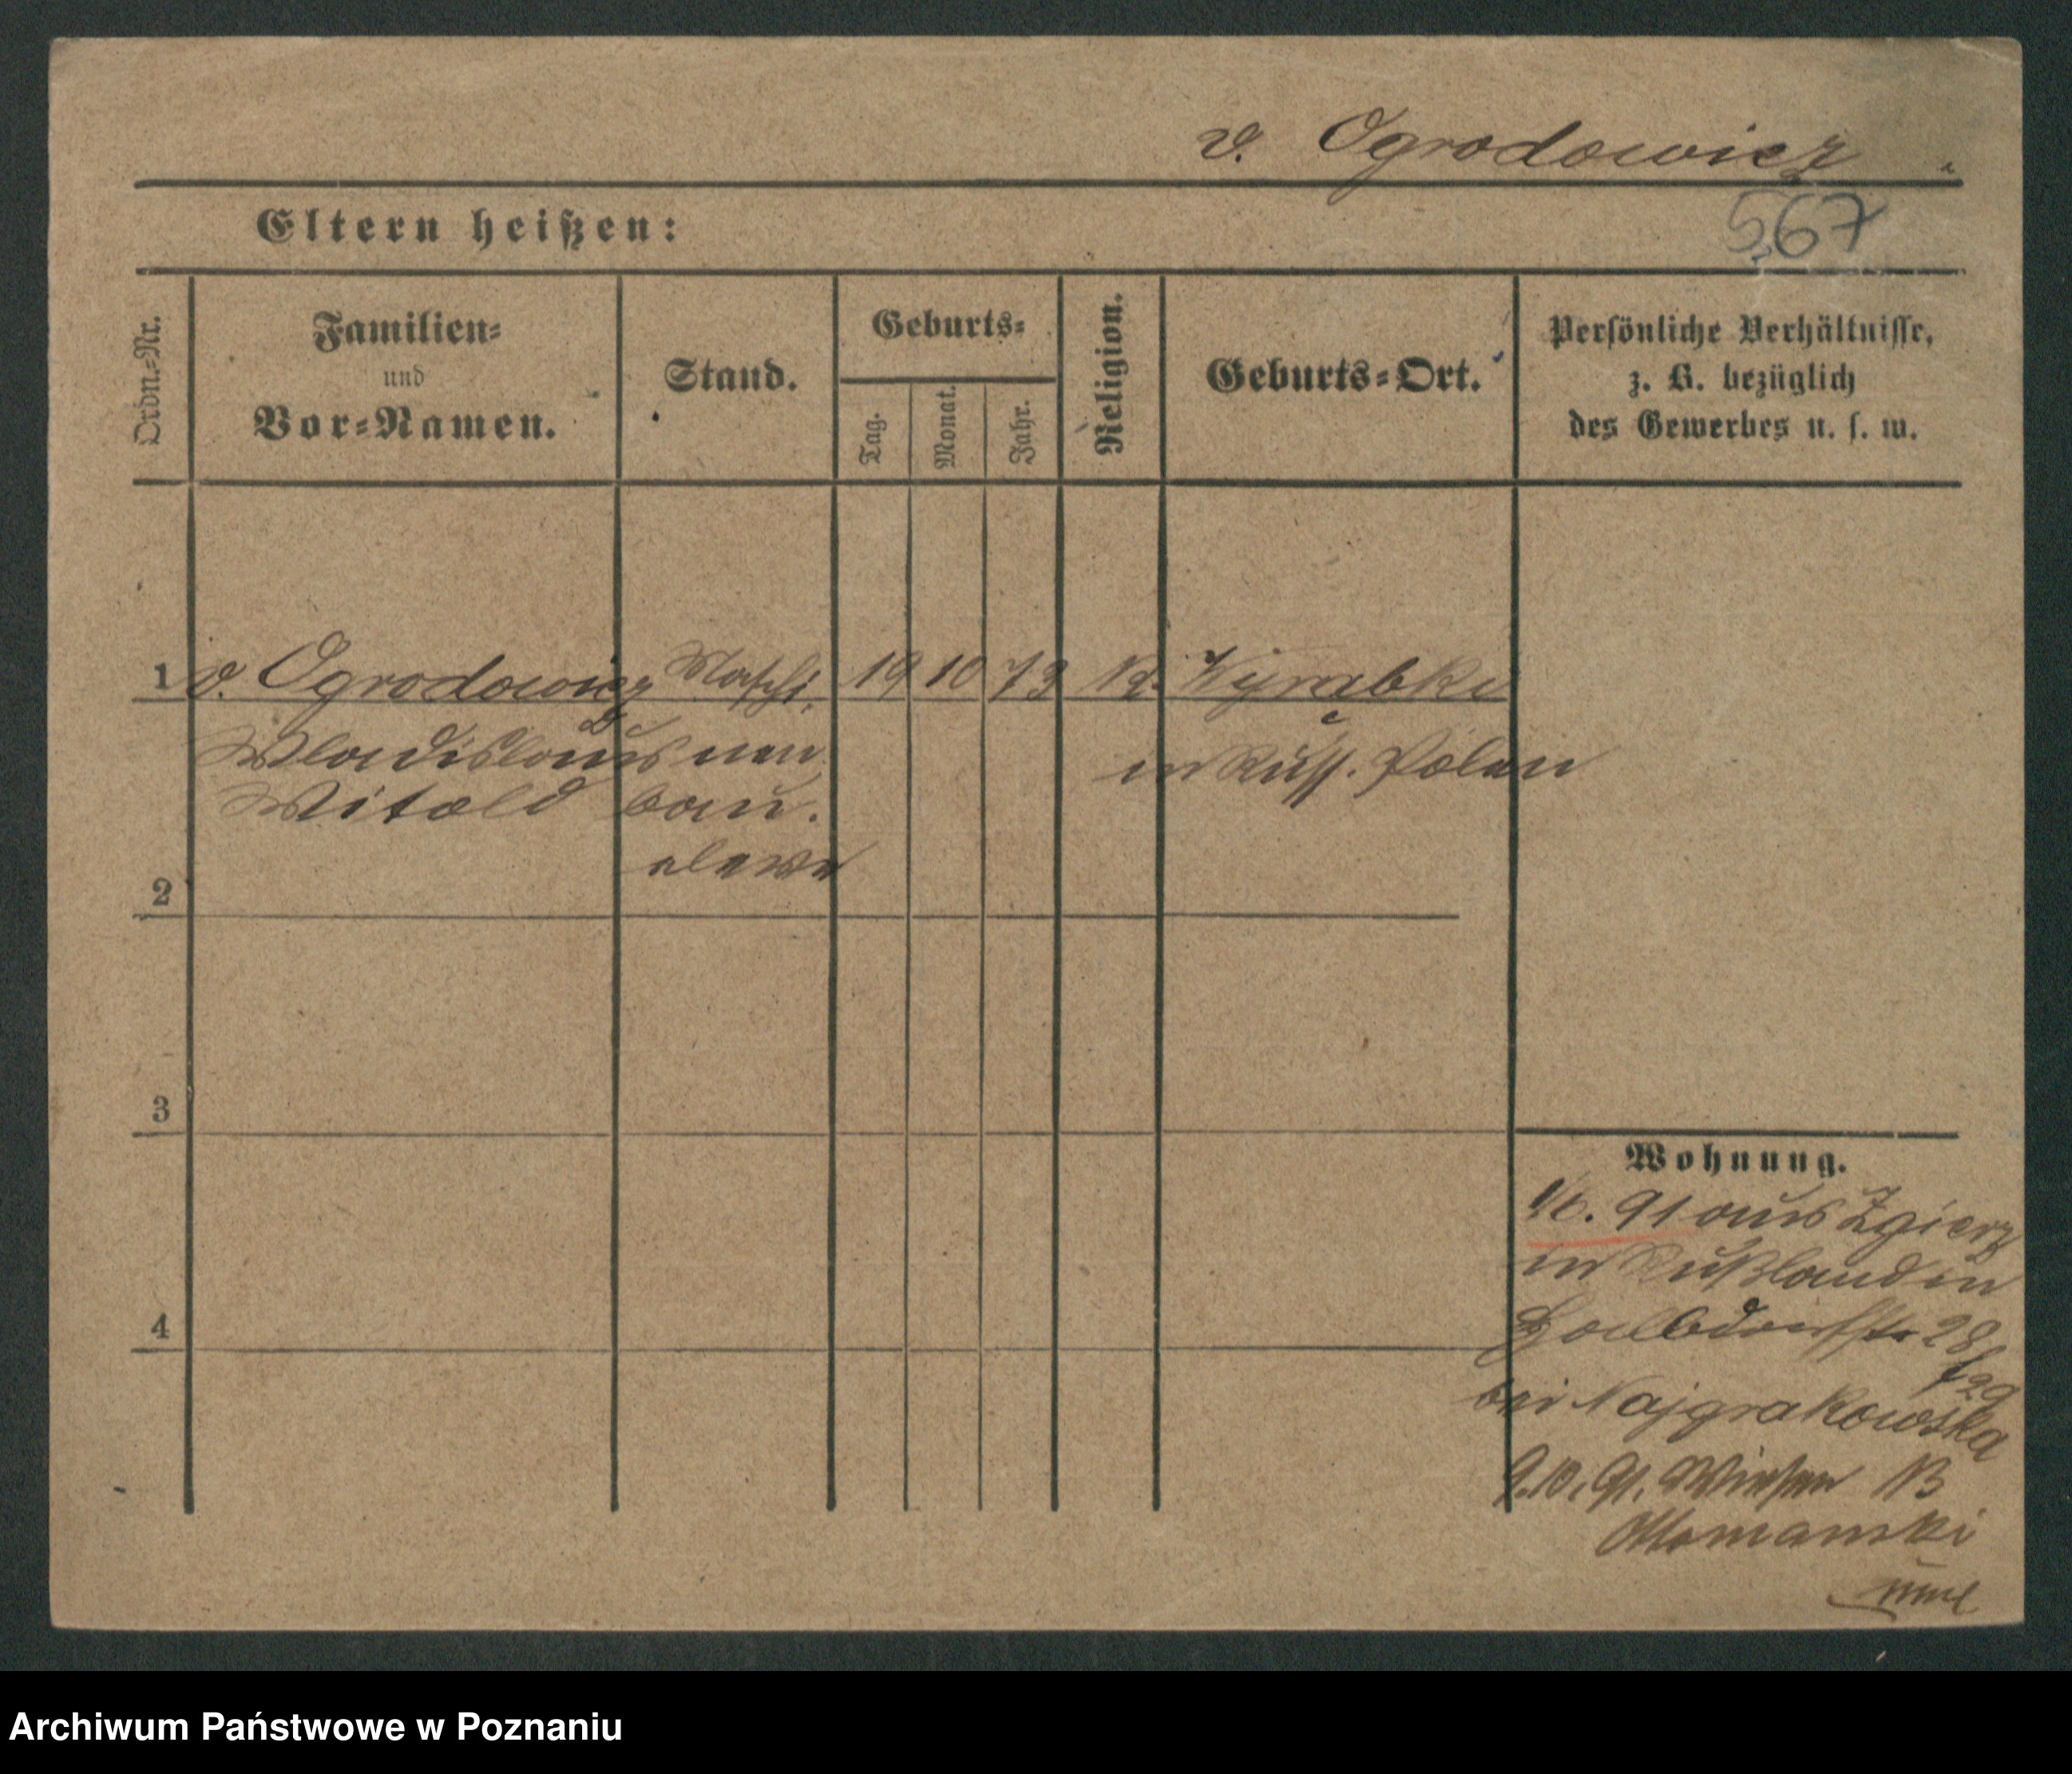 v. Ogrodowicz
567
Eltern heißen:
Ordn.-Nr.
Familien-
und
Vor-Namen.
Stand.
Geburts-
Tag.
Monat.
Jahr.
Religion.
Geburts-Ort.
Persönliche Verhältnisse,
z. B. bezüglich
des Gewerbes u. s. w.
1 v. Ogrodowicz Maschi. 19 10 73 K. Wyrabki
Wladislaus nen
in Russ. Polen
Witold bau.
eleve
2
3
4
Wohnung.
1/6. 91 aus Zgierz
in Rußland in
Halbdorfstr 28/29
bei Najgrakowska
9.10.91. Wiesen 13
Ottomanski
Archiwum Państwowe w Poznaniu